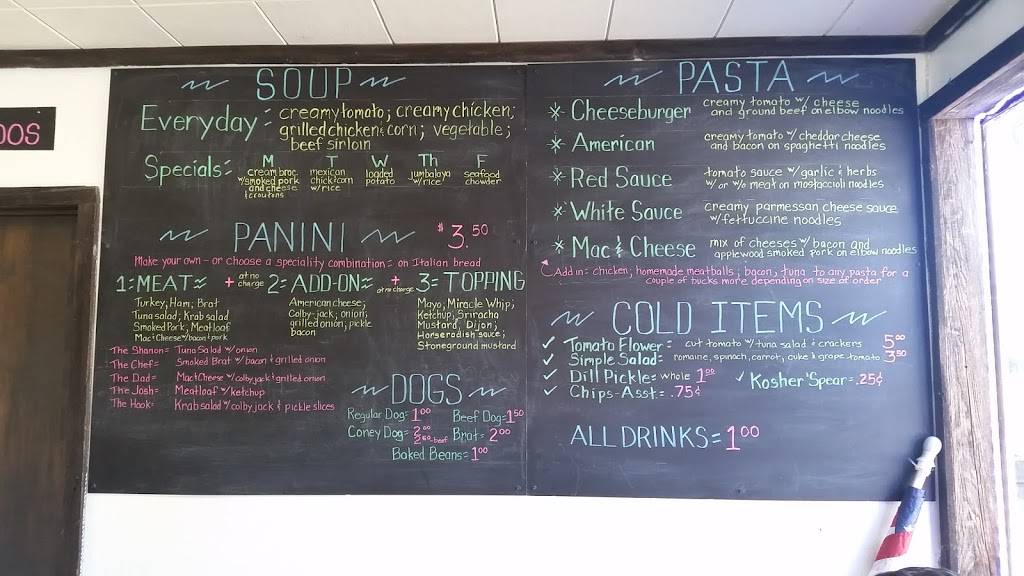 DOS
~ SOUP ~
Everyday: creamy tomato; creamy chicken;
grilled chicken & corn; vegetable;
beef sirloin
Specials: M T W Th F
cream broc. w/smoked pork and cheese & croutons
mexican chick & corn w/rice
loaded potato
jumbalaya w/rice
seafood chowder
~ PANINI ~ $3.50
Make your own - or choose a speciality combination: on Italian bread
1=MEAT≈ + at no charge 2=ADD-ON≈ + at no charge 3=TOPPING
Turkey; Ham; Brat
Tuna salad; Krab salad
Smoked Pork; Meatloaf
Mac & Cheese w/bacon & pork
American cheese;
Colby-jack; onion;
grilled onion; pickle
bacon
Mayo; Miracle Whip;
Ketchup; Sriracha
Mustard; Dijon;
Horseradish sauce;
Stoneground mustard
The Shanon= Tuna Salad w/onion
The Chef= Smoked Brat w/bacon & grilled onion
The Dad= Mac & Cheese w/colby jack & grilled onion
The Josh= Meatloaf w/ketchup
The Hook= Krab salad w/colby jack & pickle slices
~ DOGS ~
Regular Dog=1.00 Beef Dog=1.50
Coney Dog=2.00 2.50-beef Brat=2.00
Baked Beans=1.00
~ PASTA ~
* Cheeseburger creamy tomato w/ cheese
and ground beef on elbow noodles
* American creamy tomato w/ cheddar cheese
and bacon on spaghetti noodles
* Red Sauce tomato sauce w/garlic & herbs
w/ or w/o meat on mostaccioli noodles
* White Sauce creamy parmessan cheese sauce
w/fettuccine noodles
* Mac & Cheese mix of cheeses w/ bacon and
applewood smoked pork on elbow noodles
Add in= chicken; homemade meatballs; bacon, tuna to any pasta for a
couple of bucks more depending on size of order
~ COLD ITEMS ~
✓ Tomato Flower= cut tomato w/tuna salad & crackers 5.00
✓ Simple Salad= romaine, spinach, carrot, cuke & grape tomato 3.50
✓ Dill Pickle= whole 1.00 ✓ Kosher 'Spear=.25¢
✓ Chips-Asst= .75¢
ALL DRINKS=1.00